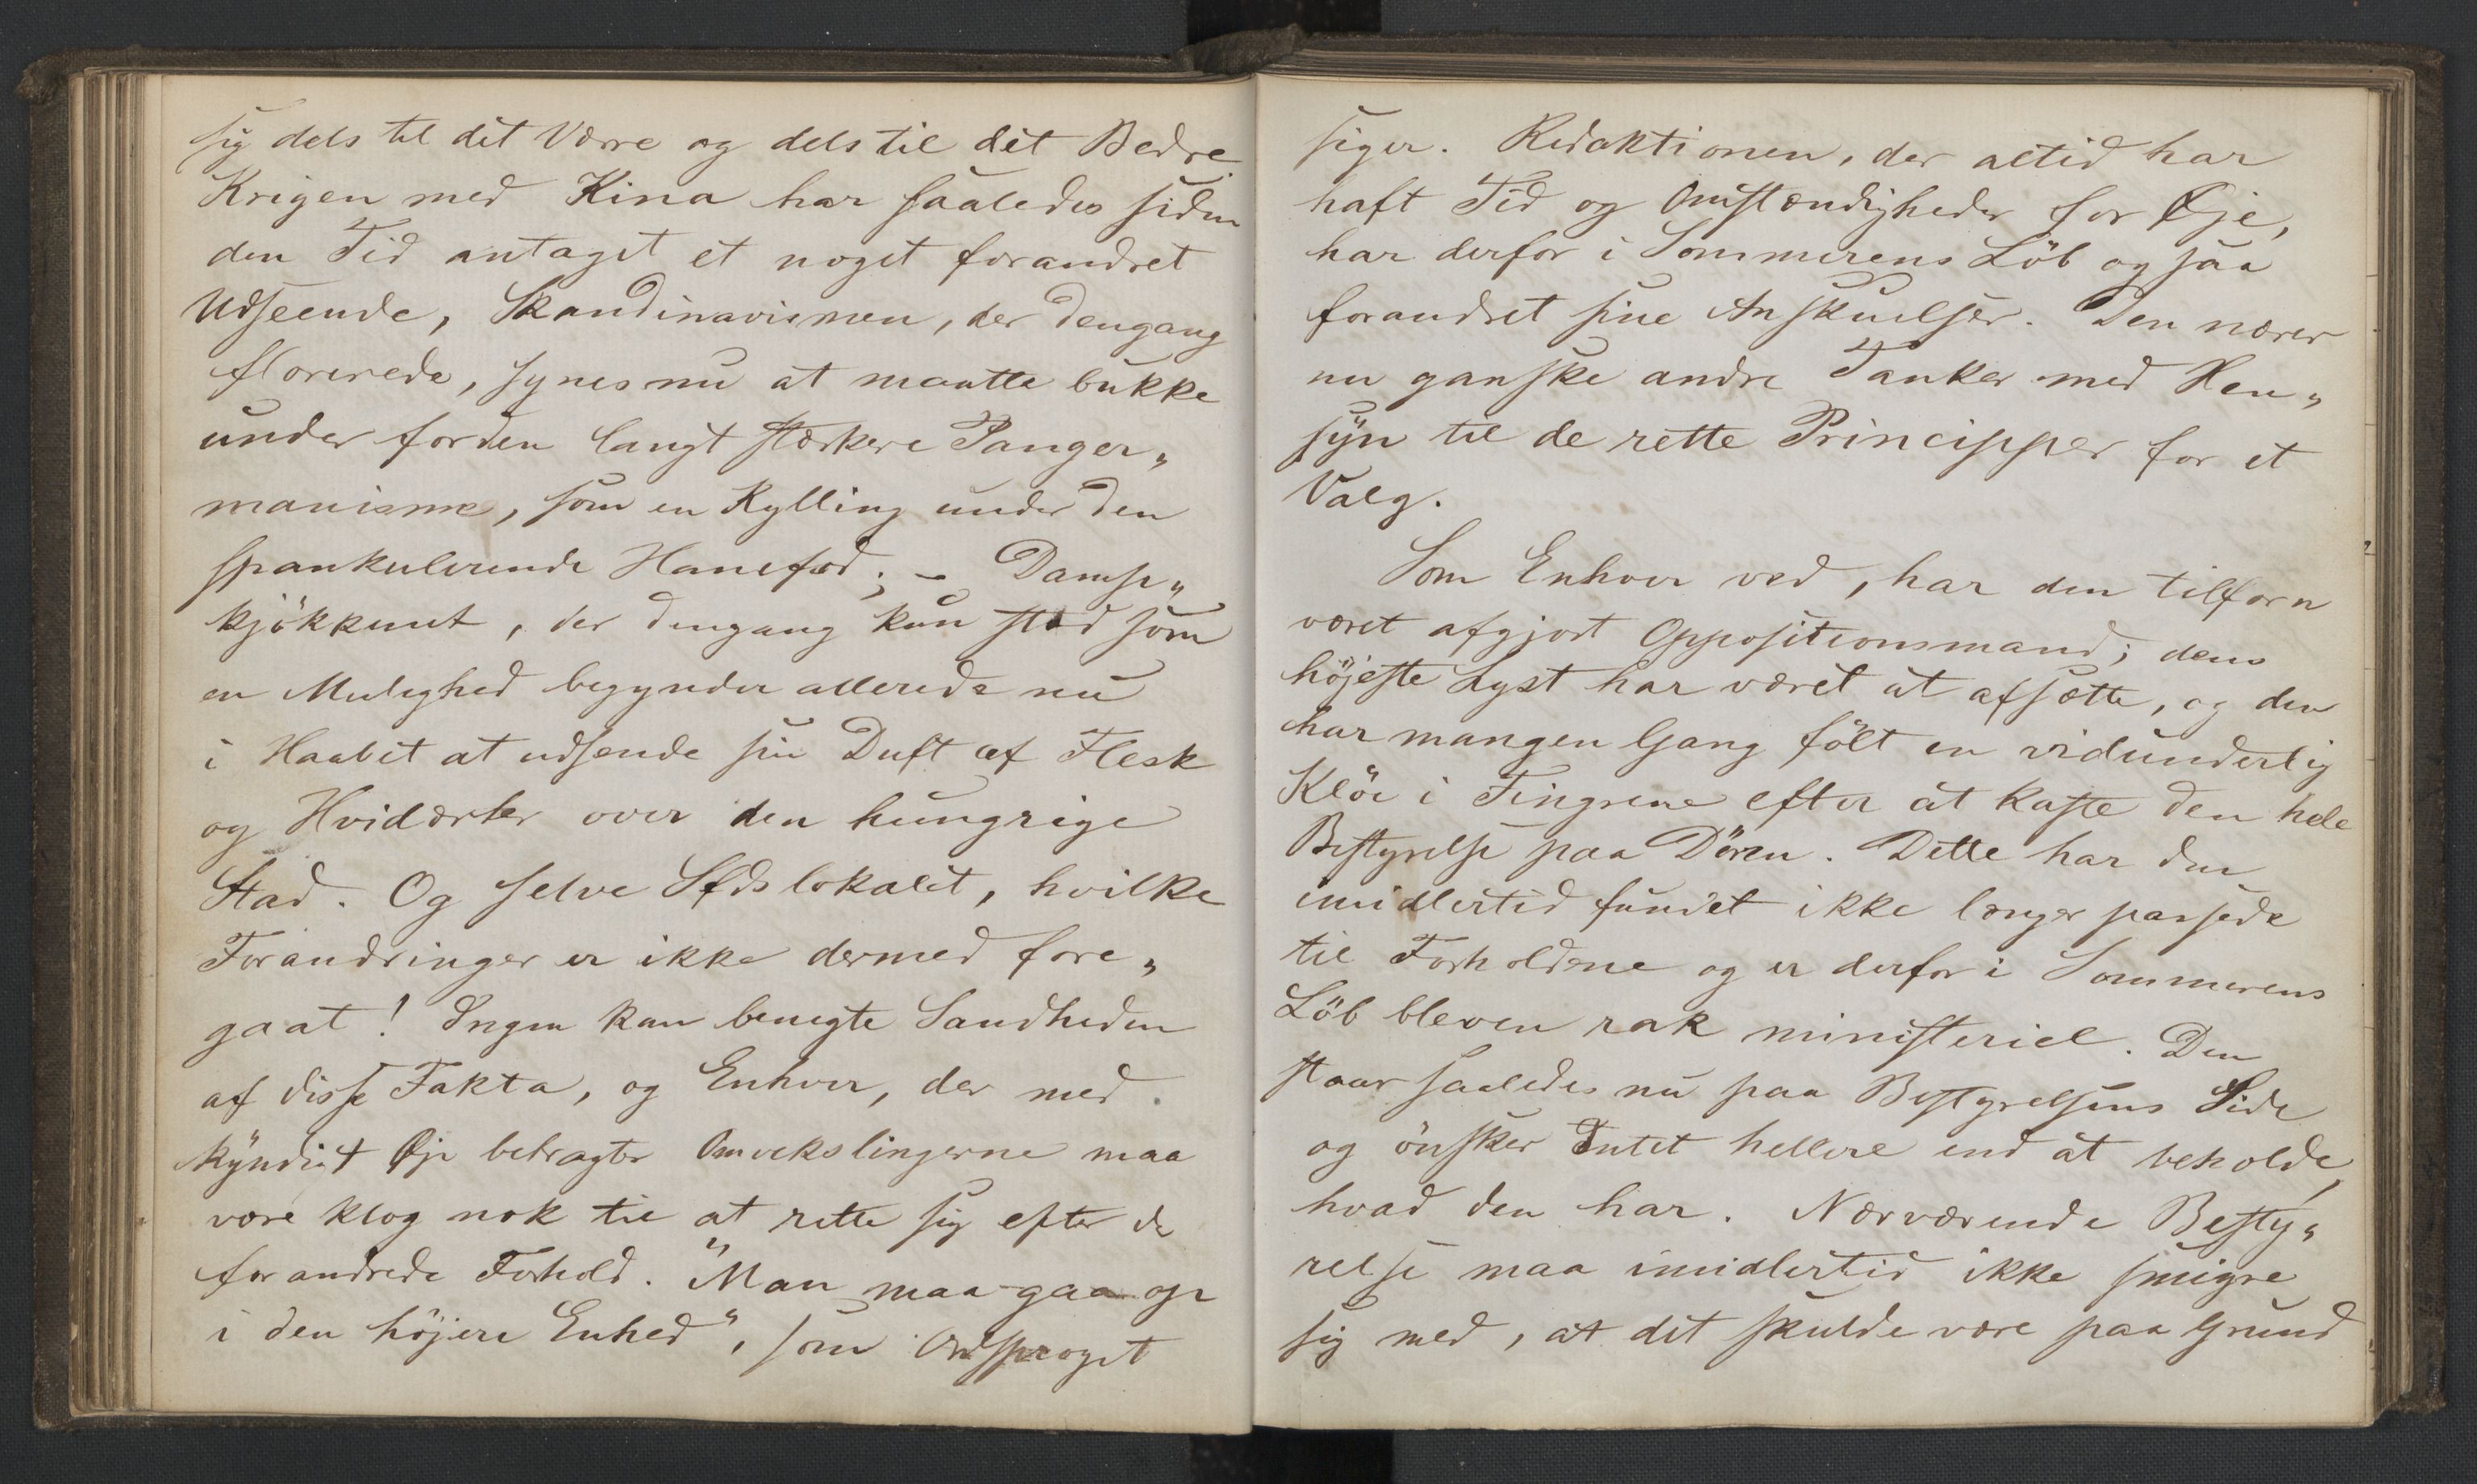 sig dels til det Værre og dels til det Bedre.
Krigen med Kina har saaledes siden
den Tid antaget et noget forandret
Udseende, Skandinavismen, der dengang
florerede, synes nu at maatte bukke
under for den langt stærkere Panger„
manisme, som en Kylling under den
spankulerende Hanefod; – Damp„
kjökkenet, der dengang kun stod som
en Mulighed begynder allerede nu
i Haabet at udsende sin Duft af Flesk
og Hvidærter over den hungrige
Stad. Og selve Sfdslokalet, hvilke
Forandringer er ikke dermed fore„
gaat! Ingen kan benegte Sandheden
af disse Fakta, og Enhver, der med
kyndigt Øje betragter Omvekslingerne maa
være klog nok til at rette sig efter de
forandrede Forhold. "Man maa gaa op
i den höjere Enhed", som Ordsproget
siger. Redaktionen, der altid har
haft Tid og Omstændigheder for Øje,
har derfor i Sommerens Löb ogsaa
forandret sine Anskuelser. Den nærer
nu ganske andre Tanker med Hen„
syn til de rette Principper for et
Valg.
Som Enhver ved, har den tilforn
været afgjort Oppositionsmand; dens
höjeste Lyst har været at afsætte, og den
har mangen Gang fölt en vidunderlig
Klöe i Fingrene efter at kaste den hele
Bestyrelse paa Dören. Dette har den
imidlertid fundet ikke længer passede
til Forholdene og er derfor i Sommerens
Löb bleven rak ministeriel. Den
staar saaledes nu paa Bestyrelsens Side
og önsker Intet hellere end at beholde,
hvad den har. Nærværende Besty„
relse maa imidlertid ikke smigre
sig med, at det skulde være paa Grund